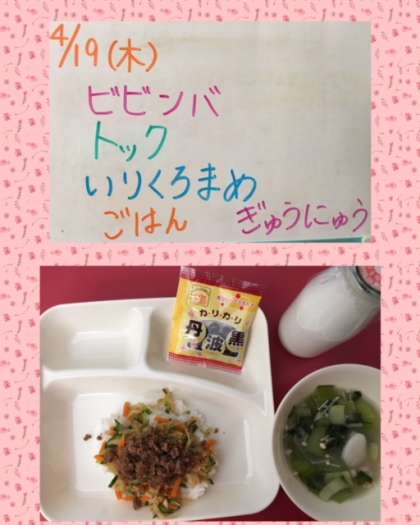 4/19(木)
ビビンバ
トック
いりくろまめ
ごはん ぎゅうにゅう
カリカリ
丹波黒